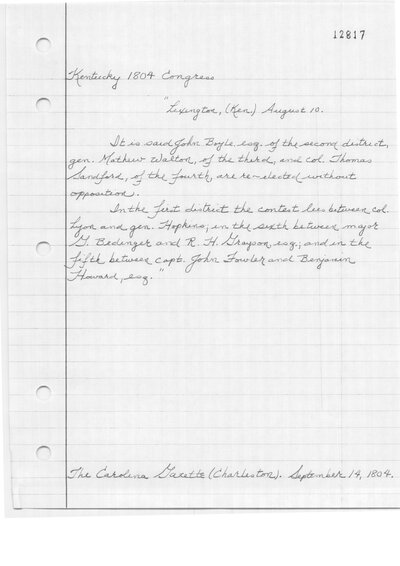 12817
Kentucky 1804 Congress
"Lexington, (Ken.) August 10.
It is said John Boyle, esq. of the second district,
gen. Mathew Walton, of the third, and col. Thomas
Sandford, of the fourth, are re-elected without
opposition.
In the first district the contest lies between col.
Lyon and gen. Hopkins; in the sixth between major
G. Bedinger and R. H. Grayson, esq.; and in the
fifth between capt. John Fowler and Benjamin
Howard, esq."
The Carolina Gazette (Charleston). September 14, 1804.